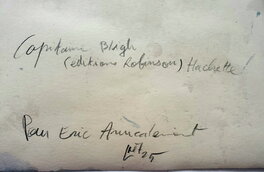 Capitaine Bligh
(éditions Robinson) Hachette!
Pour Eric Amicalement